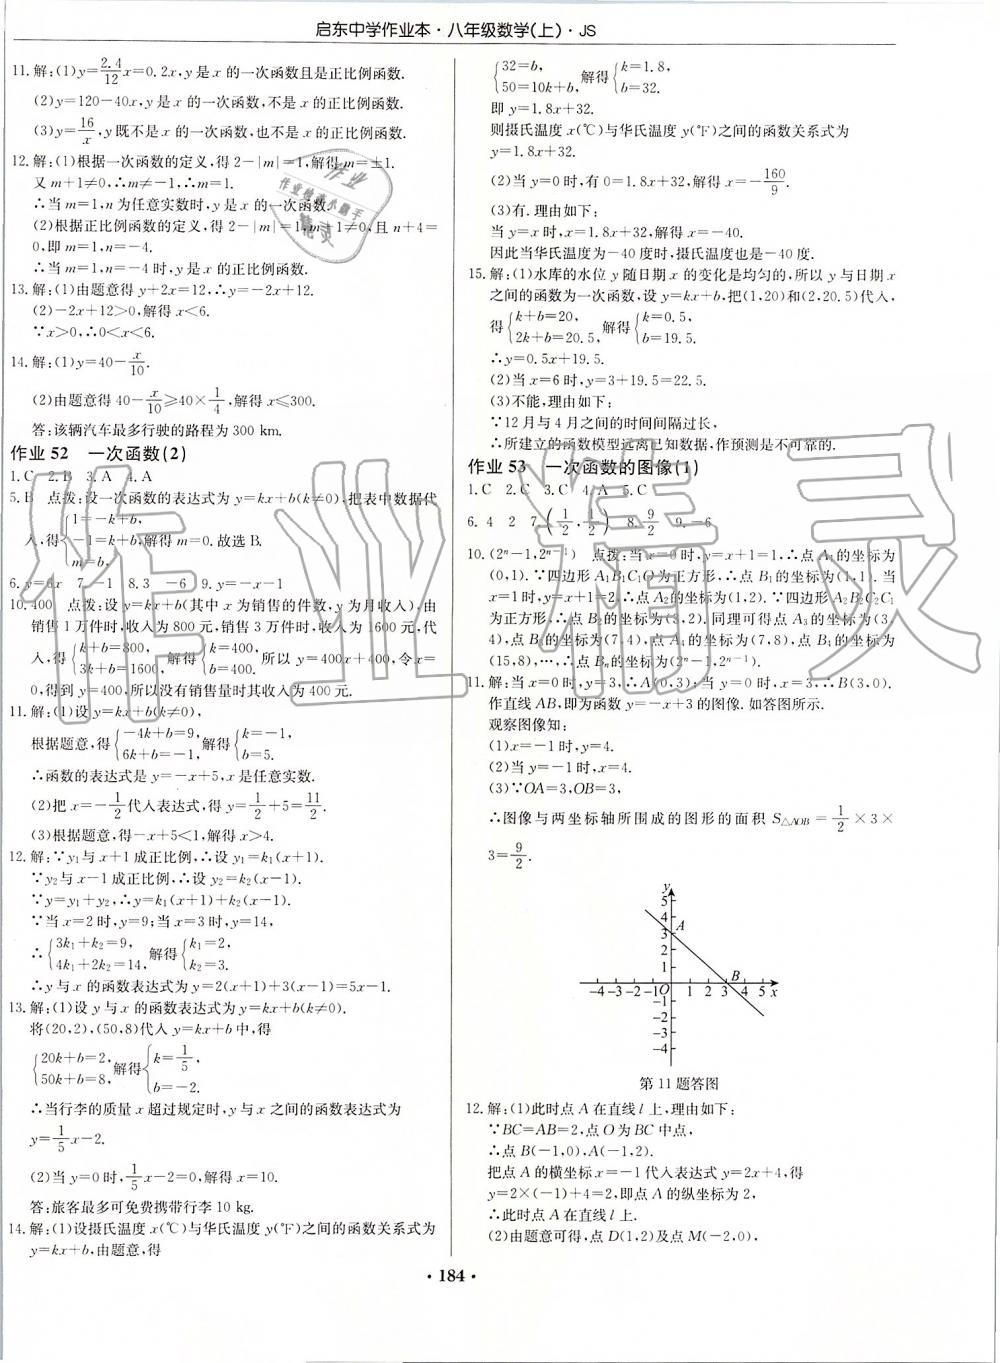 启东中学作业本·八年级数学(上)·JS
11.解:(1)y=2.4/12 x=0.2x,y是x的一次函数且是正比例函数.
(2)y=120-40x,y是x的一次函数,不是x的正比例函数.
(3)y=16/x,y既不是x的一次函数,也不是x的正比例函数.
12.解:(1)根据一次函数的定义,得2-|m|=1,解得m=±1.
又m+1≠0,∴m≠-1,∴m=1.
∴当m=1,n为任意实数时,y是x的一次函数.
(2)根据正比例函数的定义,得2-|m|=1,m+1≠0,且n+4=
0,即m=1,n=-4.
∴当m=1,n=-4时,y是x的正比例函数.
13.解:(1)由题意得y+2x=12,∴y=-2x+12.
(2)-2x+12>0,解得x<6.
∵x>0,∴0<x<6.
14.解:(1)y=40-x/10.
(2)由题意得40-x/10≥40×1/4,解得x≤300.
答:该辆汽车最多行驶的路程为300 km.
作业52 一次函数(2)
1.C 2.B 3.A 4.A
5.B 点拨:设一次函数的表达式为y=kx+b(k≠0),把表中数据代
入,得{1=-k+b, -1=k+b, m=b, 解得m=0.故选B.
6.y=6x 7.-1 8.3 -6 9.y=-x-1
10.400 点拨:设y=kx+b(其中x为销售的件数,y为月收入),由
销售1万件时,收入为800元,销售3万件时,收入为1600元,代
入,得{k+b=800, 3k+b=1600, 解得{k=400, b=400. 所以y=400x+400,令x=
0,得到y=400,所以没有销售量时其收入为400元.
11.解:(1)设y=kx+b(k≠0),
根据题意,得{-4k+b=9, 6k+b=-1, 解得{k=-1, b=5.
∴函数的表达式是y=-x+5,x是任意实数.
(2)把x=-1/2代入表达式,得y=1/2+5=11/2.
(3)根据题意,得-x+5<1,解得x>4.
12.解:∵y₁与x+1成正比例,∴设y₁=k₁(x+1).
∵y₂与x-1成正比例,∴设y₂=k₂(x-1).
∵y=y₁+y₂,∴y=k₁(x+1)+k₂(x-1).
∵当x=2时,y=9;当x=3时,y=14,
∴{3k₁+k₂=9, 4k₁+2k₂=14, 解得{k₁=2, k₂=3.
∴y与x的函数表达式为y=2(x+1)+3(x-1)=5x-1.
13.解:(1)设y与x的函数表达式为y=kx+b(k≠0).
将(20,2),(50,8)代入y=kx+b中,得
{20k+b=2, 50k+b=8, 解得{k=1/5, b=-2.
∴当行李的质量x超过规定时,y与x之间的函数表达式为
y=1/5 x-2.
(2)当y=0时,1/5 x-2=0,解得x=10.
答:旅客最多可免费携带行李10 kg.
14.解:(1)设摄氏温度x(℃)与华氏温度y(℉)之间的函数关系式为
y=kx+b,由题意,得
{32=b, 50=10k+b, 解得{k=1.8, b=32.
即y=1.8x+32.
则摄氏温度x(℃)与华氏温度y(℉)之间的函数关系式为
y=1.8x+32.
(2)当y=0时,有0=1.8x+32,解得x=-160/9.
(3)有.理由如下:
当y=x时,x=1.8x+32,解得x=-40.
因此当华氏温度为-40度时,摄氏温度也是-40度.
15.解:(1)水库的水位y随日期x的变化是均匀的,所以y与日期x
之间的函数为一次函数,设y=kx+b,把(1,20)和(2,20.5)代入,
得{k+b=20, 2k+b=20.5, 解得{k=0.5, b=19.5.
∴y=0.5x+19.5.
(2)当x=6时,y=3+19.5=22.5.
(3)不能,理由如下:
∵12月与4月之间的时间间隔过长,
∴所建立的函数模型远离已知数据,作预测是不可靠的.
作业53 一次函数的图像(1)
1.C 2.C 3.C 4.A 5.C
6.4 2 7.(1/2,1/2) 8.9/2 9.-6
10.(2ⁿ-1,2ⁿ⁻¹) 点拨:当x=0时,y=x+1=1,∴点A₁的坐标为
(0,1).∵四边形A₁B₁C₁O为正方形,∴点B₁的坐标为(1,1).当
x=1时,y=x+1=2,∴点A₂的坐标为(1,2).∵四边形A₂B₂C₂C₁
为正方形,∴点B₂的坐标为(3,2).同理可得点A₃的坐标为(3,
4),点B₃的坐标为(7,4),点A₄的坐标为(7,8),点B₄的坐标为
(15,8),…,∴点Bₙ的坐标为(2ⁿ-1,2ⁿ⁻¹).
11.解:当x=0时,y=3,∴A(0,3);当y=0时,x=3,∴B(3,0).
作直线AB,即为函数y=-x+3的图像.如答图所示.
观察图像知:
(1)x=-1时,y=4.
(2)当y=-1时,x=4.
(3)∵OA=3,OB=3,
∴图像与两坐标轴所围成的图形的面积S△AOB=1/2×3×
3=9/2.
y
5
4
3 A
2
1
-4 -3 -2 -1 O 1 2 3 4 5 x
B
-1
-2
-3
-4
第11题答图
12.解:(1)此时点A在直线l上,理由如下:
∵BC=AB=2,点O为BC中点,
∴点B(-1,0),A(-1,2).
把点A的横坐标x=-1代入表达式y=2x+4,得
y=2×(-1)+4=2,即点A的纵坐标为2,
∴此时点A在直线l上.
(2)由题意可得,点D(1,2)及点M(-2,0),
·184·
作业精灵